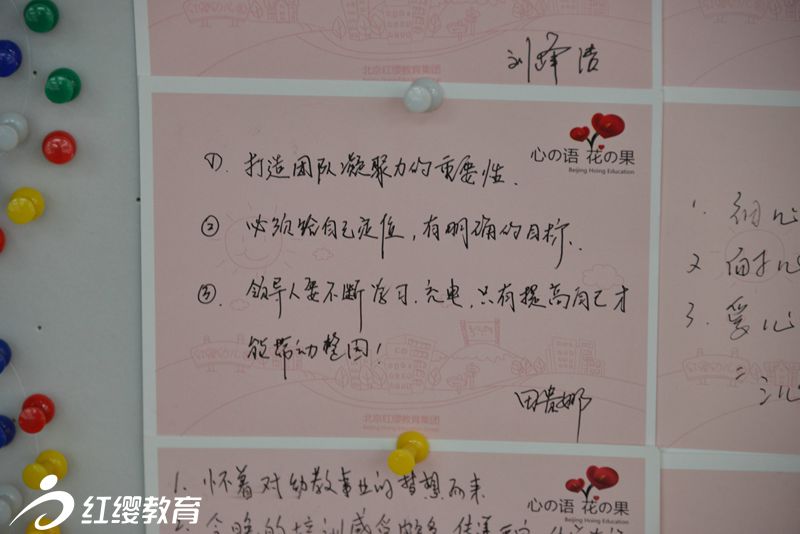 北京红缨教育集团
刘峰浩
心の语 花の果
Beijing Hoing Education
①. 打造团队凝聚力的重要性.
② 必须给自己定位,有明确的目标.
③. 领导人要不断学习.充电.只有提高自己才
能带动整园!
北京红缨教育集团
Beijing Hoing Education Group
田贵娜
1.
2
3. 爱心
1. 怀着对幼教事业的梦想而来
心の语 花の果
Beijing Hoing Education
2. 今晚的培训感受
红缨教育